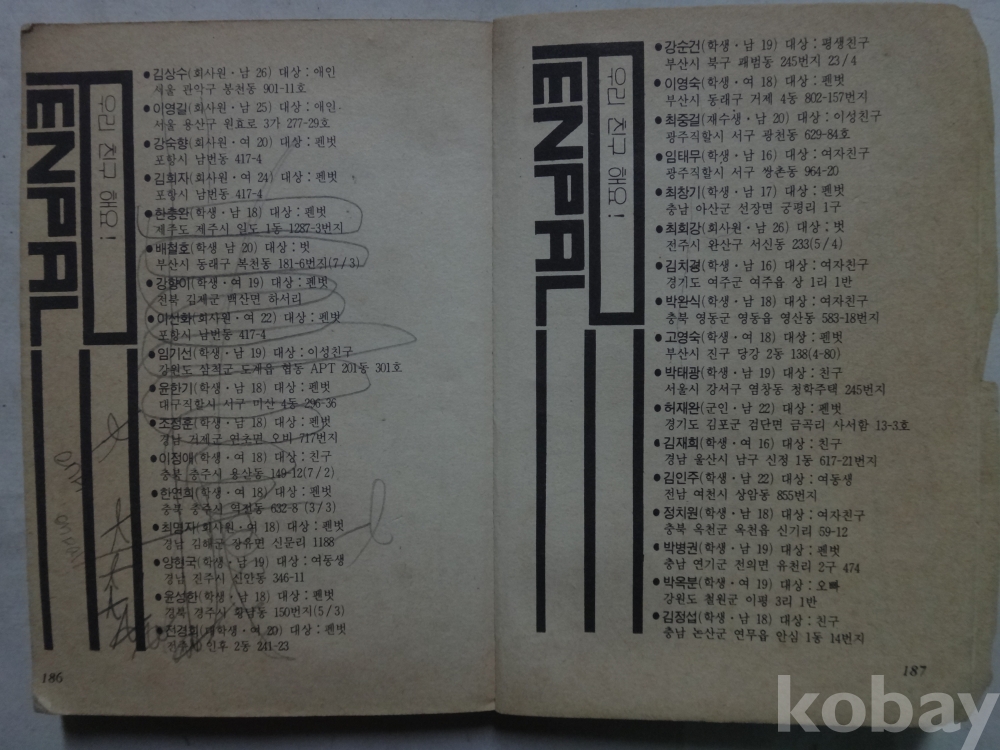 PENPAL
우리 친구 해요!
●김상수(회사원·남 26) 대상:애인
서울 관악구 봉천동 901-11호
●이영길(회사원·남 25) 대상:애인
서울 용산구 원효로 3가 277-29호
●강숙향(회사원·여 20) 대상:펜벗
포항시 남빈동 417-4
●김희자(회사원·여 24) 대상:펜벗
포항시 남빈동 417-4
●한충완(학생·남 18) 대상:펜벗
제주도 제주시 일도 1동 1287-3번지
●배철호(학생 남 20) 대상:벗
부산시 동래구 복천동 181-6번지(7/3)
●강항이(학생·여 19) 대상:펜벗
전북 김제군 백산면 하서리
●이선화(회사원·여 22) 대상:펜벗
포항시 남빈동 417-4
●임기선(학생·남 19) 대상:이성친구
강원도 삼척군 도계읍 협동 APT 201동 301호
●윤한기(학생·남 18) 대상:펜벗
대구직할시 서구 비산 4동 296-36
●조정훈(학생·남 18) 대상:펜벗
경남 거제군 연초면 오비 717번지
●이정애(학생·여 18) 대상:친구
충북 충주시 용산동 149-12(7/2)
●한연희(학생·여 18) 대상:펜벗
충북 충주시 역전동 632-8 (3/3)
●최영자(회사원·여 18) 대상:펜벗
경남 김해군 장유면 신문리 1188
●양현국(학생·남 19) 대상:여동생
경남 진주시 신안동 346-11
●윤성한(학생·남 18) 대상:펜벗
경북 경주시 황남동 150번지(5/3)
●전경희(대학생·여 20) 대상:펜벗
전주시 인후 2동 241-23
186
PENPAL
우리 친구 해요!
●강순건(학생·남 19) 대상:평생친구
부산시 북구 괘법동 245번지 23/4
●이영숙(학생·여 18) 대상:펜벗
부산시 동래구 거제 4동 802-157번지
●최중걸(재수생·남 20) 대상:이성친구
광주직할시 서구 광천동 629-84호
●임태무(학생·남 16) 대상:여자친구
광주직할시 서구 쌍촌동 964-20
●최창기(학생·남 17) 대상:펜벗
충남 아산군 선장면 궁평리 1구
●최회강(회사원·남 26) 대상:벗
전주시 완산구 서신동 233(5/4)
●김치경(학생·남 16) 대상:여자친구
경기도 여주군 여주읍 상 1리 1반
●박완식(학생·남 18) 대상:여자친구
충북 영동군 영동읍 영산동 583-18번지
●고영숙(학생·여 18) 대상:펜벗
부산시 진구 당감 2동 138(4-80)
●박태광(학생·남 19) 대상:친구
서울시 강서구 염창동 청학주택 245번지
●허재완(군인·남 22) 대상:펜벗
경기도 김포군 검단면 금곡리 사서함 13-3호
●김재희(학생·여 16) 대상:친구
경남 울산시 남구 신정 1동 617-21번지
●김인주(학생·남 22) 대상:여동생
전남 여천시 상암동 855번지
●정치원(학생·남 18) 대상:여자친구
충북 옥천군 옥천읍 신기리 59-12
●박병권(학생·남 19) 대상:펜벗
충남 연기군 전의면 유천리 2구 474
●박옥분(학생·여 19) 대상:오빠
강원도 철원군 이평 3리 1반
●김정섭(학생·남 18) 대상:친구
충남 논산군 연무읍 안심 1동 14번지
187
kobay